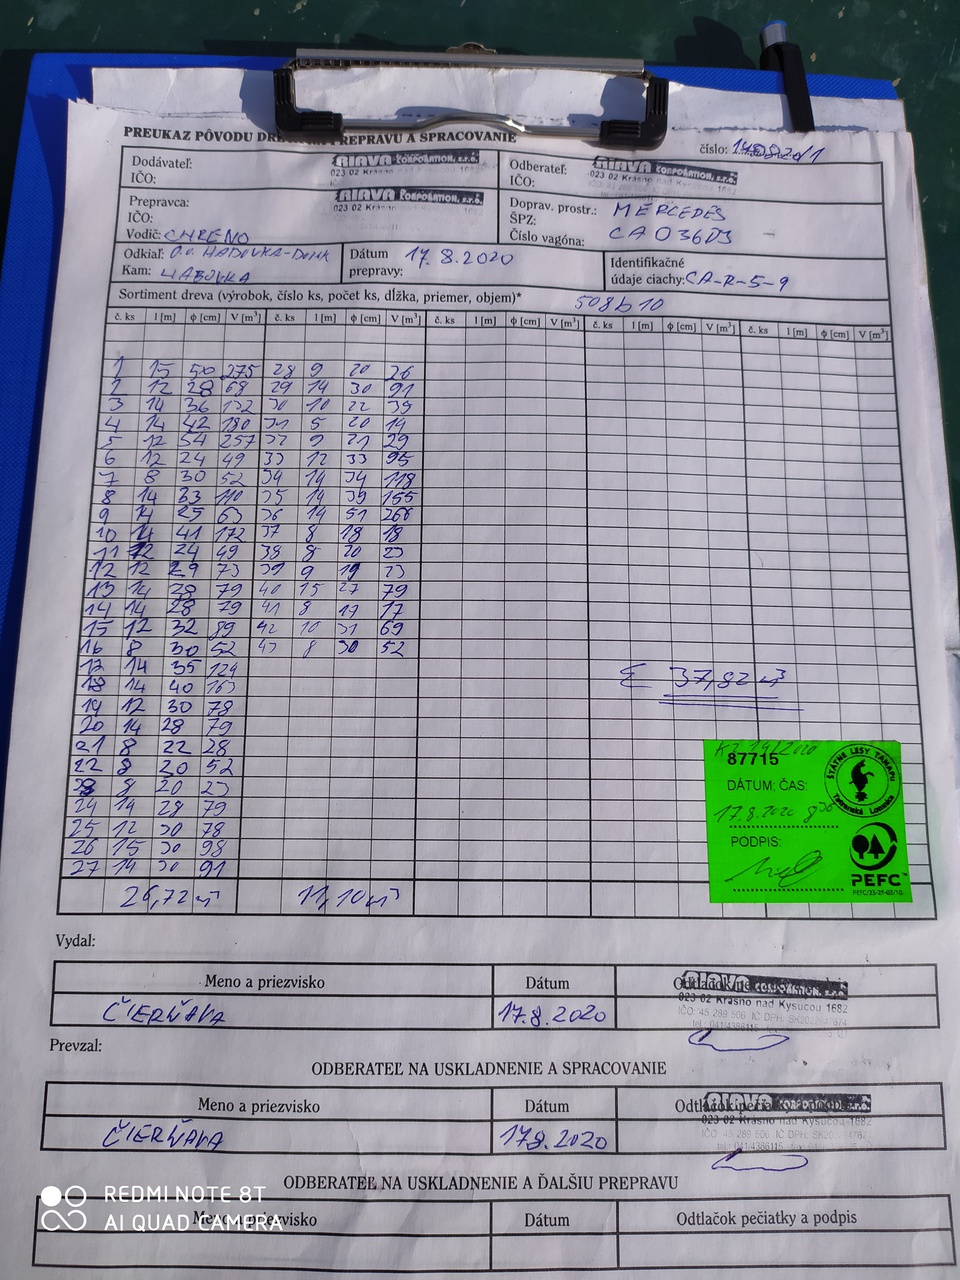 PREUKAZ PÔVODU DRE PREPRAVU A SPRACOVANIE
číslo:
Dodávateľ: AIAVA CORPORATION, s.r.o.
IČO: 023 02 Krásno nad Kysucou 1682
Odberateľ: AIAVA CORPORATION, s.r.o.
IČO: 023 02 Krásno nad Kysucou 1682
Prepravca: AIAVA CORPORATION, s.r.o.
IČO: 023 02 Krásno
Vodič: CHRENO
Doprav. prostr.: MERCEDES
ŠPZ:
Číslo vagóna: CA036DJ
Odkiaľ: HABOVKA-
Kam: HABOVKA
Dátum prepravy: 17.8.2020
Identifikačné
údaje ciachy: CA-R-5-9
Sortiment dreva (výrobok, číslo ks, počet ks, dĺžka, priemer, objem)* 508b10
č. ks l [m] ϕ [cm] V [m³] č. ks l [m] ϕ [cm] V [m³] č. ks l [m] ϕ [cm] V [m³] č. ks l [m] ϕ [cm] V [m³] č. ks l [m] ϕ [cm] V [m³]
1 15 50 275 28 9 20 26
2 12 28 68 29 14 30 91
3 14 36 132 30 10 22 39
4 14 42 180 31 5 20 14
5 12 54 257 32 9 21 29
6 12 24 49 33 12 33 95
7 8 30 52 34 14 34 118
8 14 33 110 35 14 39 155
9 14 25 63 36 14 51 266
10 14 41 172 37 8 18 18
11 12 24 49 38 8 20 23
12 12 29 73 39 9 19 23
13 14 28 79 40 15 27 79
14 14 28 79 41 8 17 17
15 12 32 89 42 10 31 69
16 8 30 52 43 8 30 52
17 14 35 124
18 14 40 163
19 12 30 78
20 14 28 79
21 8 22 28
22 8 20 52
23 8 20 23
24 14 28 79
25 12 30 78
26 15 30 98
27 14 30 91
26,72 m³ 11,10 m³
Σ 37,82 m³
KZ 14/2020
87715
DÁTUM, ČAS:
17.8.2020 8³⁰
PODPIS:
ŠTÁTNE LESY TANAPU
Tatranská Lomnica
PEFC™
PEFC/23-21-03/10
Vydal:
Meno a priezvisko Dátum Odtlačok
ČIERŇAVA 17.8.2020
AIAVA CORPORATION, s.r.o.
023 02 Krásno nad Kysucou 1682
Prevzal:
ODBERATEĽ NA USKLADNENIE A SPRACOVANIE
Meno a priezvisko Dátum Odtlačok
ČIERŇAVA 17.8.2020
AIAVA CORPORATION, s.r.o.
023 02 Krásno nad Kysucou 1682
ODBERATEĽ NA USKLADNENIE A ĎALŠIU PREPRAVU
Meno a priezvisko Dátum Odtlačok pečiatky a podpis
REDMI NOTE 8T
AI QUAD CAMERA